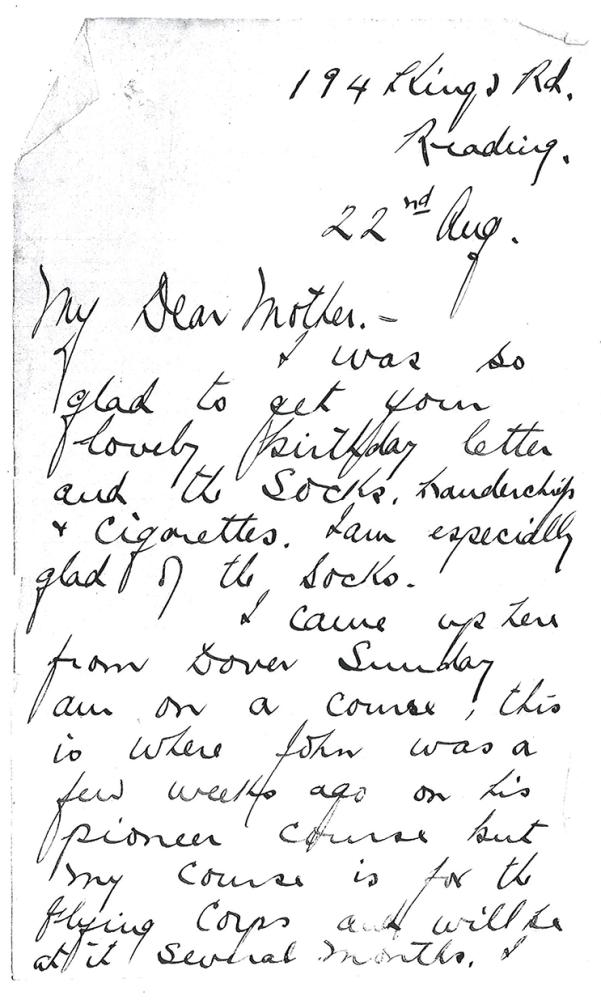 194 Kings Rd.
Reading.
22nd Aug.
My Dear Mother.-
I was so
glad to get your
lovely birthday letter
and the Socks, handerchips
& Cigarettes. I am especially
glad of the socks.
I came up here
from Dover Sunday
am on a course, this
is where John was a
few weeks ago on his
pioneer course but
my course is for the
Flying Corps and will be
at it several months. I